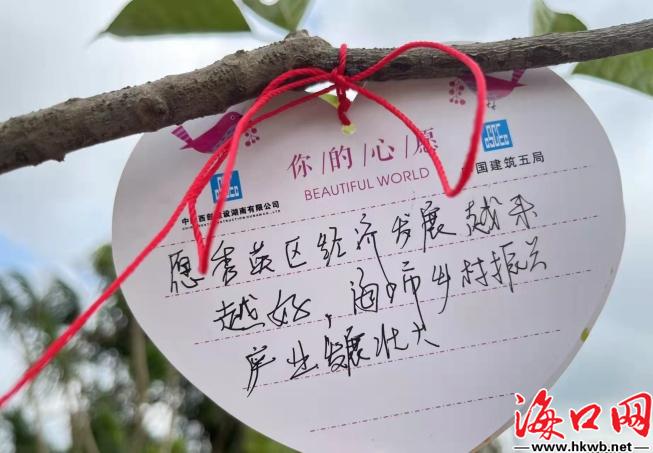 你的心愿
BEAUTIFUL WORLD
国建筑五局
设湖南有限公司
愿秀英区经济发展越来
越好，海口市乡村振兴
产业发展壮大
海口网
www.hkwb.net